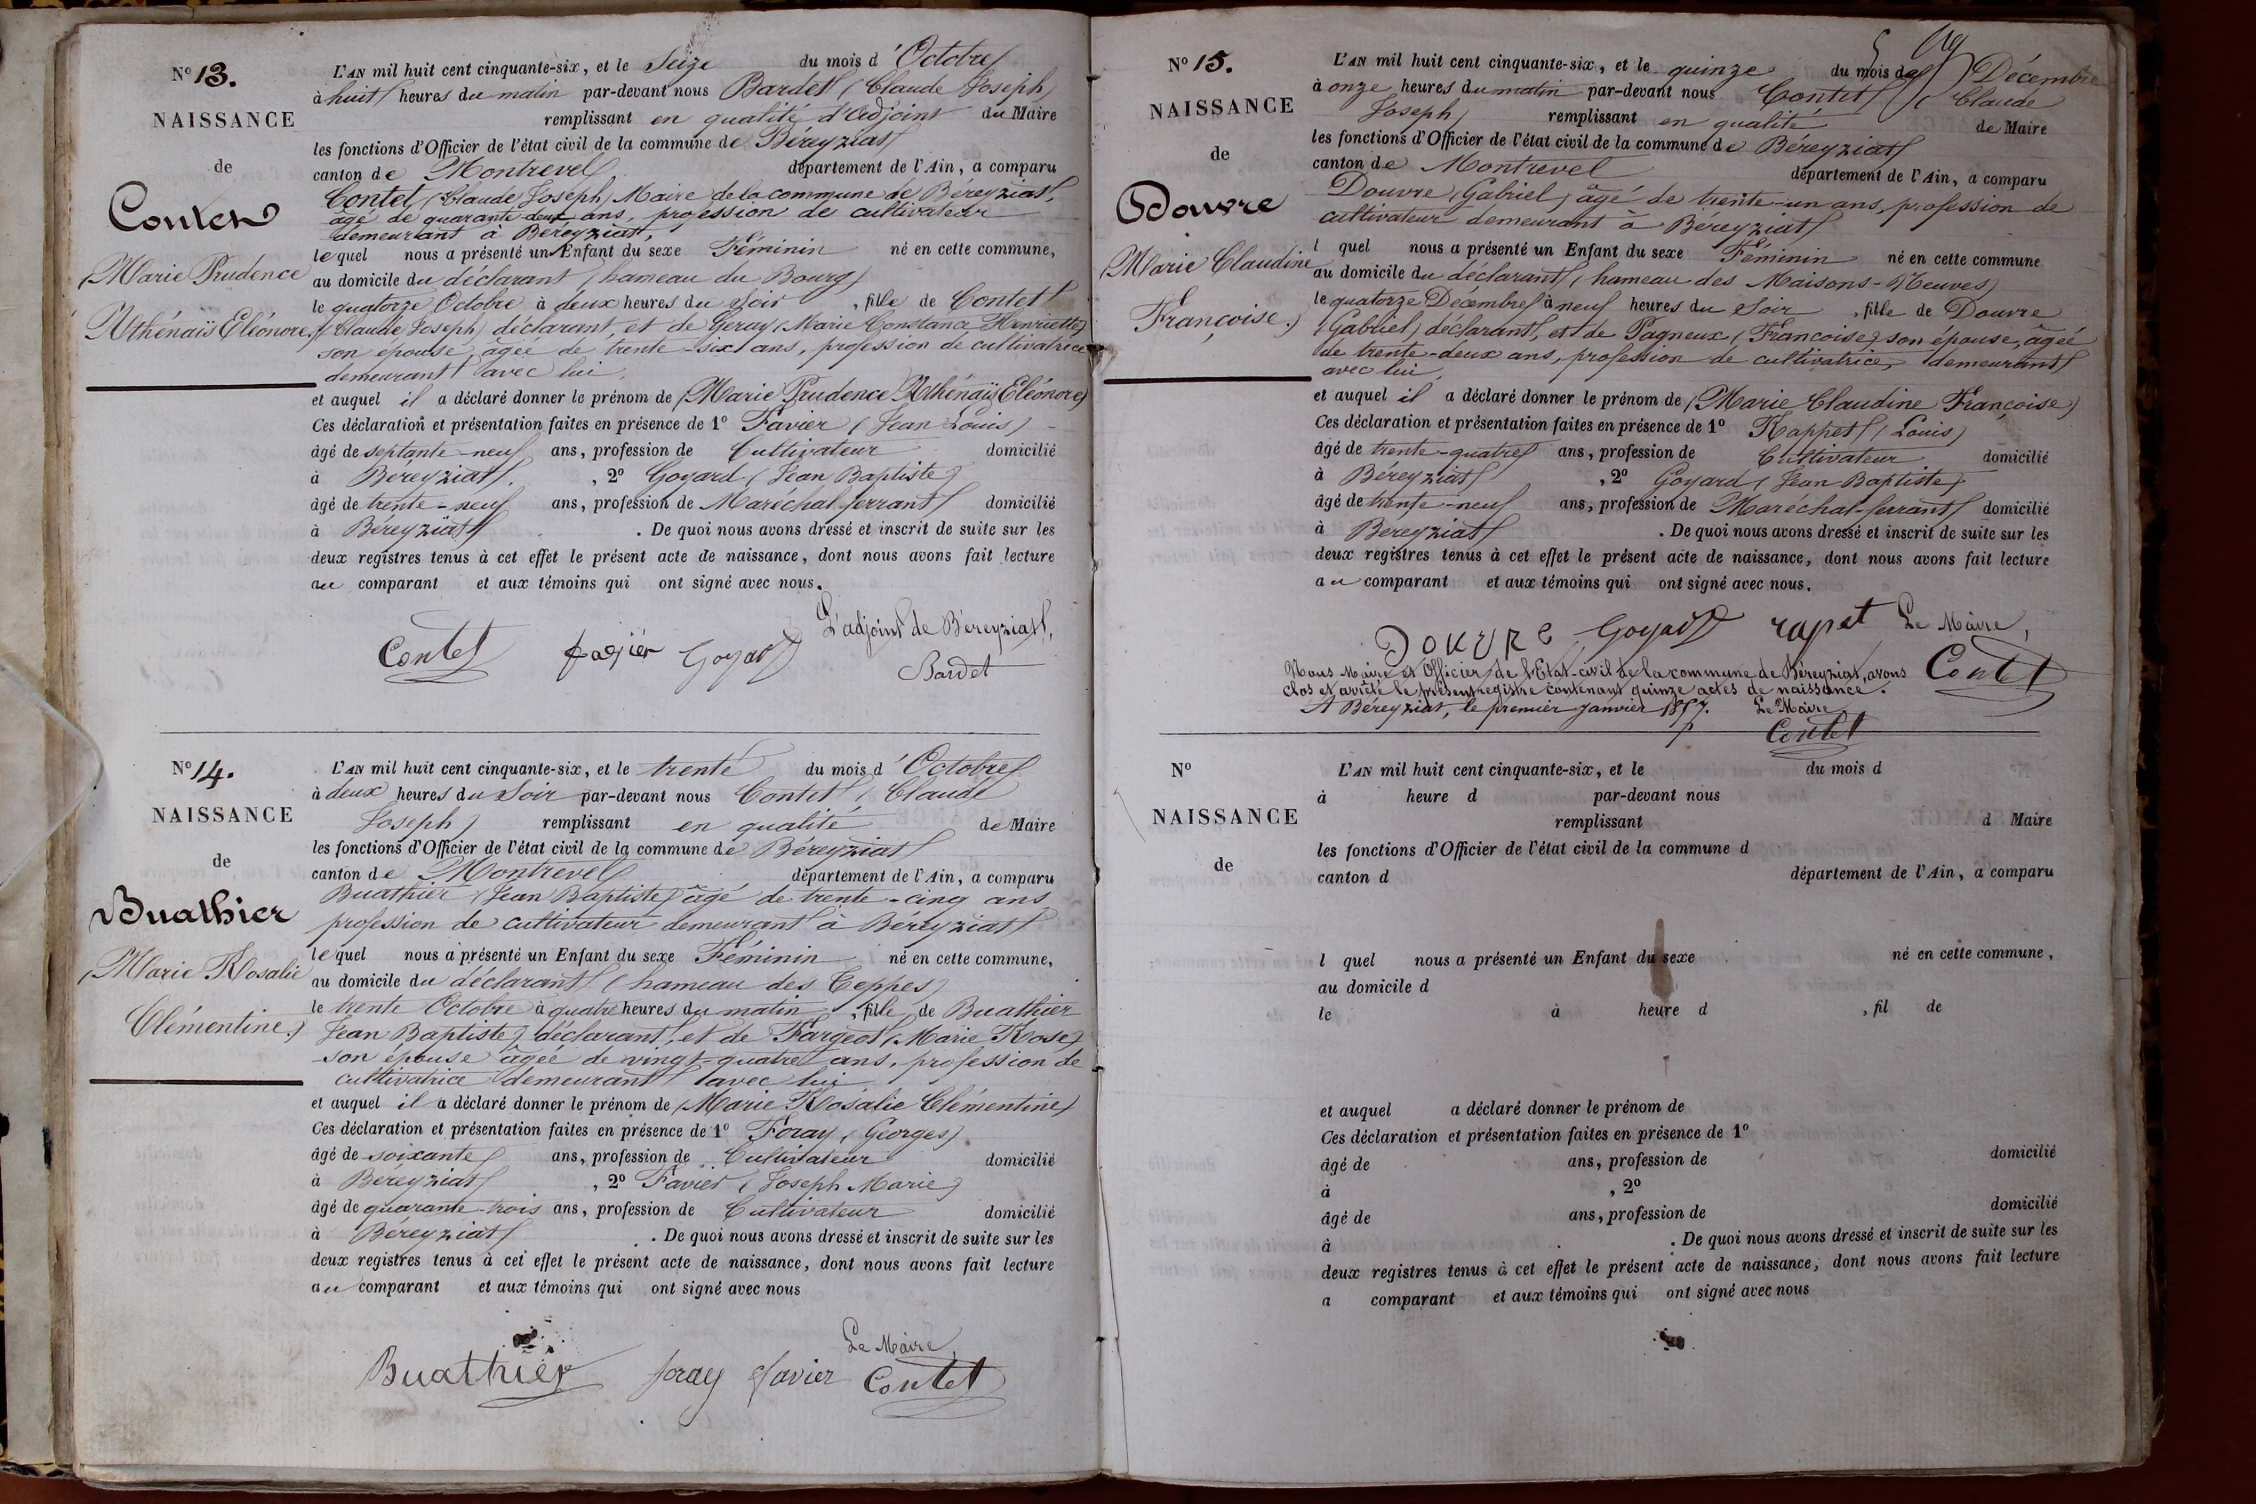 N° 13.
NAISSANCE
de
Contet
(Marie Prudence
Athénaïs Eléonore.)
L'AN mil huit cent cinquante-six, et le Seize du mois d'Octobre
à huit heures du matin par-devant nous Bardet (Claude Joseph)
remplissant en qualité d'Adjoint du Maire
les fonctions d'Officier de l'état civil de la commune de Béreyziat
canton de Montrevel département de l'Ain, a comparu
Contet (Claude Joseph) Maire de la commune de Béreyziat,
âgé de quarante-deux ans, profession de cultivateur
demeurant à Béreyziat,
lequel nous a présenté un Enfant du sexe Féminin né en cette commune,
au domicile du déclarant (hameau du Bourg)
le quatorze Octobre à deux heures du Soir, fille de Contet
(Claude Joseph) déclarant, et de Geray (Marie Constance Henriette)
son épouse, âgée de trente-six ans, profession de cultivatrice
demeurant avec lui,
et auquel il a déclaré donner le prénom de (Marie Prudence Athénaïs Eléonore)
Ces déclaration et présentation faites en présence de 1° Favier (Jean Louis)
âgé de septante-neuf ans, profession de Cultivateur domicilié
à Béreyziat, 2° Goyard (Jean Baptiste)
âgé de trente-neuf ans, profession de Maréchal ferrant domicilié
à Béreyziat. De quoi nous avons dressé et inscrit de suite sur les
deux registres tenus à cet effet le présent acte de naissance, dont nous avons fait lecture
au comparant et aux témoins qui ont signé avec nous.
L'adjoint de Béreyziat,
Contet favier Goyard Bardet
N° 14.
NAISSANCE
de
Buathier
(Marie Rosalie
Clémentine.)
L'AN mil huit cent cinquante-six, et le trente du mois d'Octobre
à deux heures du Soir par-devant nous Contet (Claude
Joseph) remplissant en qualité de Maire
les fonctions d'Officier de l'état civil de la commune de Béreyziat
canton de Montrevel département de l'Ain, a comparu
Buathier (Jean Baptiste) âgé de trente-cinq ans
profession de cultivateur demeurant à Béreyziat
lequel nous a présenté un Enfant du sexe Féminin né en cette commune,
au domicile du déclarant (hameau des Teppes)
le trente Octobre à quatre heures du matin, fille de Buathier
Jean Baptiste) déclarant, et de Fargeot (Marie Rose)
son épouse âgée de vingt-quatre ans, profession de
cultivatrice demeurant avec lui
et auquel il a déclaré donner le prénom de (Marie Rosalie Clémentine)
Ces déclaration et présentation faites en présence de 1° Foray (Georges)
âgé de soixante ans, profession de Cultivateur domicilié
à Béreyziat, 2° Favier (Joseph Marie)
âgé de quarante-trois ans, profession de Cultivateur domicilié
à Béreyziat. De quoi nous avons dressé et inscrit de suite sur les
deux registres tenus à cet effet le présent acte de naissance, dont nous avons fait lecture
au comparant et aux témoins qui ont signé avec nous
Le Maire,
Buathier foray favier Contet
N° 15.
NAISSANCE
de
Douvre
(Marie Claudine
Françoise.)
L'AN mil huit cent cinquante-six, et le quinze du mois de Décembre
à onze heures du matin par-devant nous Contet (Claude
Joseph) remplissant en qualité de Maire
les fonctions d'Officier de l'état civil de la commune de Béreyziat
canton de Montrevel département de l'Ain, a comparu
Douvre (Gabriel) âgé de trente-un ans, profession de
cultivateur demeurant à Béreyziat
l quel nous a présenté un Enfant du sexe Féminin né en cette commune
au domicile du déclarant (hameau des Maisons-Neuves)
le quatorze Décembre à neuf heures du Soir, fille de Douvre
(Gabriel) déclarant, et de Pagneux (Françoise) son épouse, âgée
de trente-deux ans, profession de cultivatrice, demeurant
avec lui,
et auquel il a déclaré donner le prénom de (Marie Claudine Françoise)
Ces déclaration et présentation faites en présence de 1° Rappet (Louis)
âgé de trente-quatre ans, profession de Cultivateur domicilié
à Béreyziat, 2° Goyard (Jean Baptiste)
âgé de trente-neuf ans, profession de Maréchal-ferrant domicilié
à Béreyziat. De quoi nous avons dressé et inscrit de suite sur les
deux registres tenus à cet effet le présent acte de naissance, dont nous avons fait lecture
au comparant et aux témoins qui ont signé avec nous.
DOUVRE Goyard rapet Le Maire,
Contet
Nous Maire et Officier de l'Etat-civil de la commune de Béreyziat, avons
clos et arrêté le présent registre contenant quinze actes de naissance.
A Béreyziat, le premier Janvier 1857. Le Maire
Contet
N°
NAISSANCE
de
L'AN mil huit cent cinquante-six, et le du mois d
à heure d par-devant nous
remplissant d Maire
les fonctions d'Officier de l'état civil de la commune d
canton d département de l'Ain, a comparu
l quel nous a présenté un Enfant du sexe né en cette commune,
au domicile d
le à heure d , fil de
et auquel a déclaré donner le prénom de
Ces déclaration et présentation faites en présence de 1°
âgé de ans, profession de domicilié
à , 2°
âgé de ans, profession de domicilié
à . De quoi nous avons dressé et inscrit de suite sur les
deux registres tenus à cet effet le présent acte de naissance, dont nous avons fait lecture
a comparant et aux témoins qui ont signé avec nous